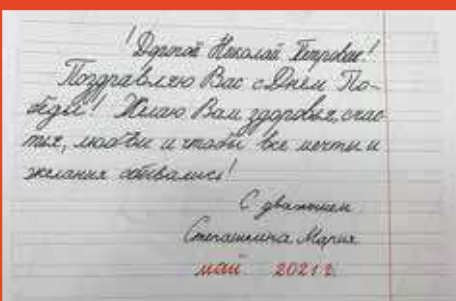 ! Дорогой Николай Петрович!
Поздравляю Вас с Днём По-
беды! Желаю Вам здоровья, счас-
тья, любви и чтобы все мечты и
желания сбывались!
С уважением
Степашкина Мария
май 2021 г.